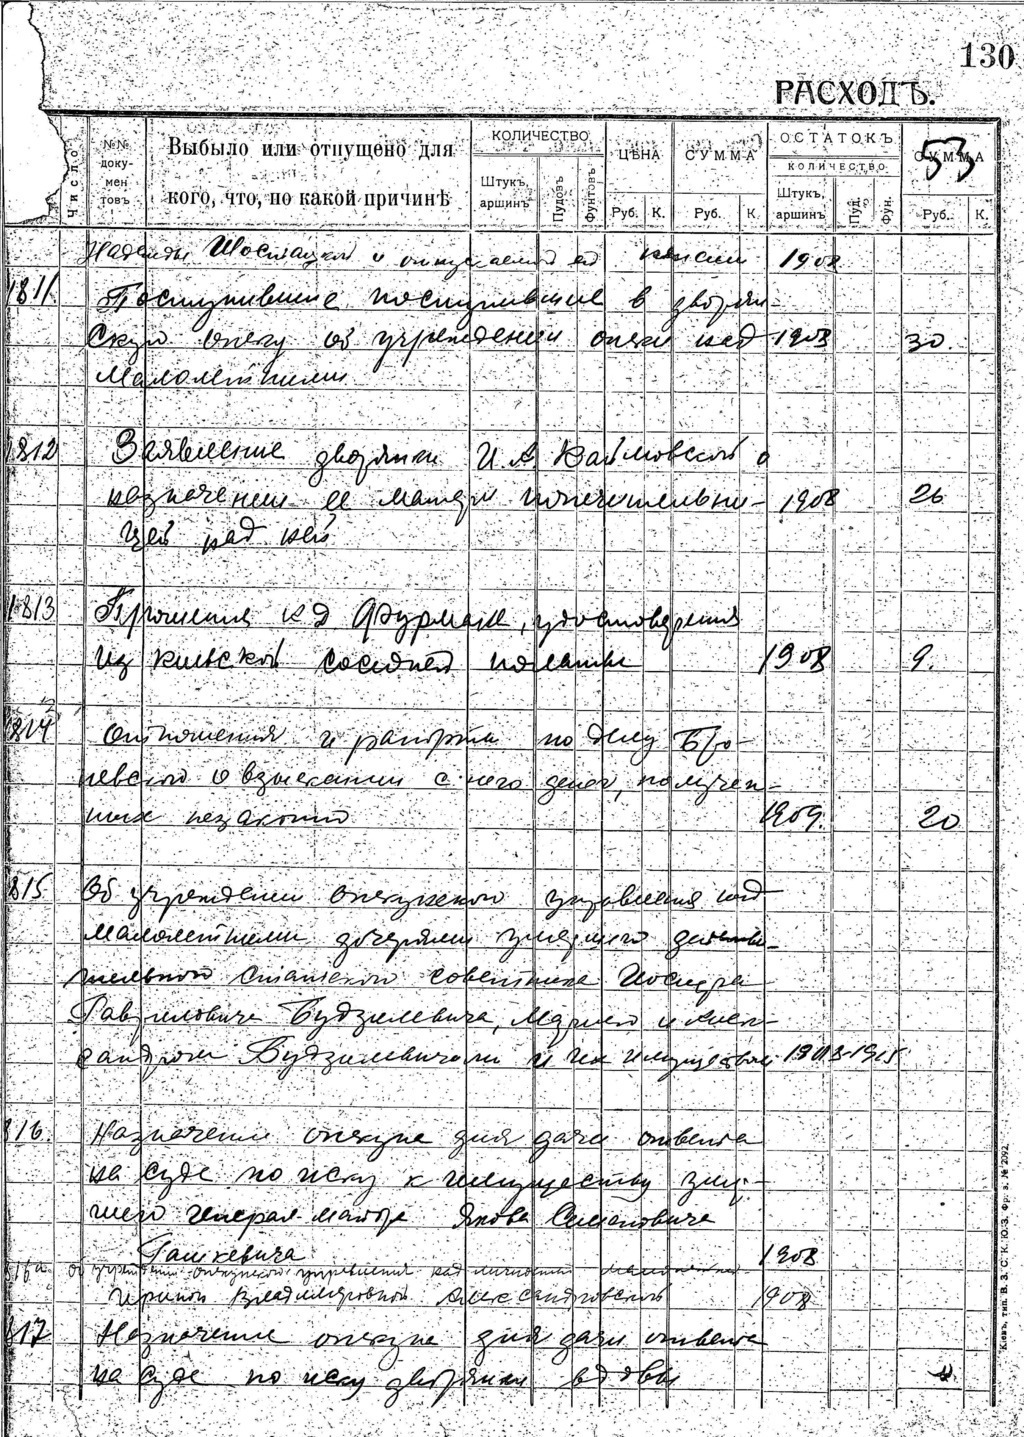 130
РАСХОДЪ.
Число
№№ доку- мен товъ
Выбыло или отпущено для
кого, что, по какой причинѣ
КОЛИЧЕСТВО
Штукъ, аршинъ
Пудовъ
Фунтовъ
ЦѢНА
Руб. К.
СУММА
Руб. К.
ОСТАТОКЪ
КОЛИЧЕСТВО
Штукъ, аршинъ
Пуд.
Фун.
СУММА
53
Руб. К.
Надежды и опекаемой ея 1908
1811. Поступившие поступившие в дворян-
скую опеку об учреждении опеки над 1908 30.
малолетними
1812 Заявление дворянки И. А. о
назначении ее матери попечительни- 1908 26
цей над ней
1813 Прошения К Д Фурмана, удостоверения
из киевской соседней палаты 1908 9.
1814 Отношения и рапорты по делу Бро-
невского о взыскании с него денег, получен-
ных незаконно 1909. 20
815 Об учреждении опекунского управления над
малолетними дочерями умершего действи-
тельного статского советника Иосифа
Гавриловича Будзилевича, Марией и Алек-
сандрой Будзилевичами и их имуществом 1908-1915
816. Назначении опекуна для дачи ответа
на суде по иску к имуществу умер-
шего генерал майора Якова Семеновича
Гашкевича 1908
816а Об учреждении опекунского управления над личностью
Ириной Владимировной Александровской 1908
817 Назначение опекуна для дачи ответа
на суде по иску дворянки вдовы
Кіевъ, тип. В. З. С. К. Ю.-З. Фр. з. № 2092.